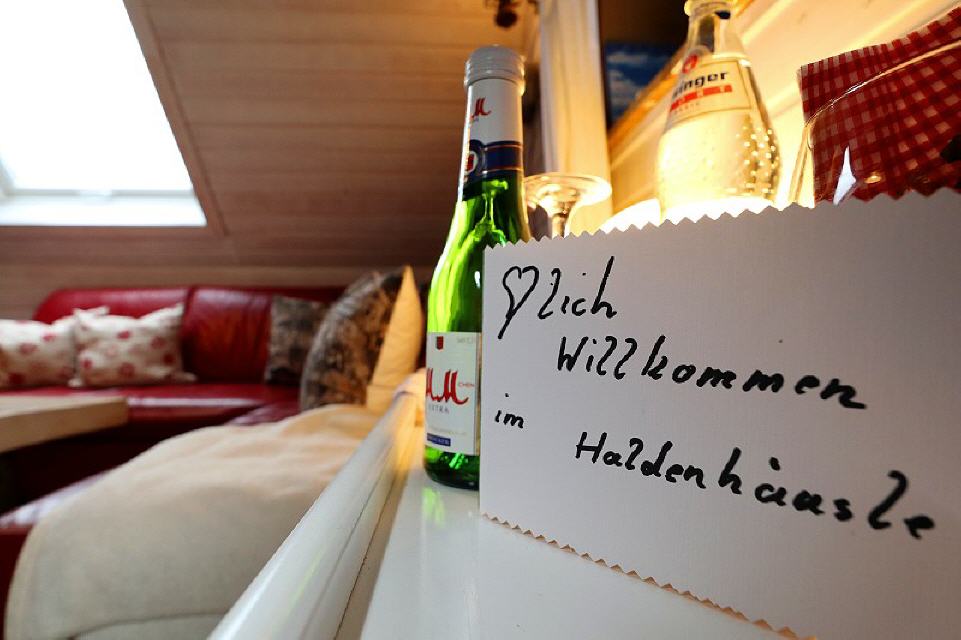 ♡lich
Willkommen
im
Haldenhäusle
MM
EXTRA
inger